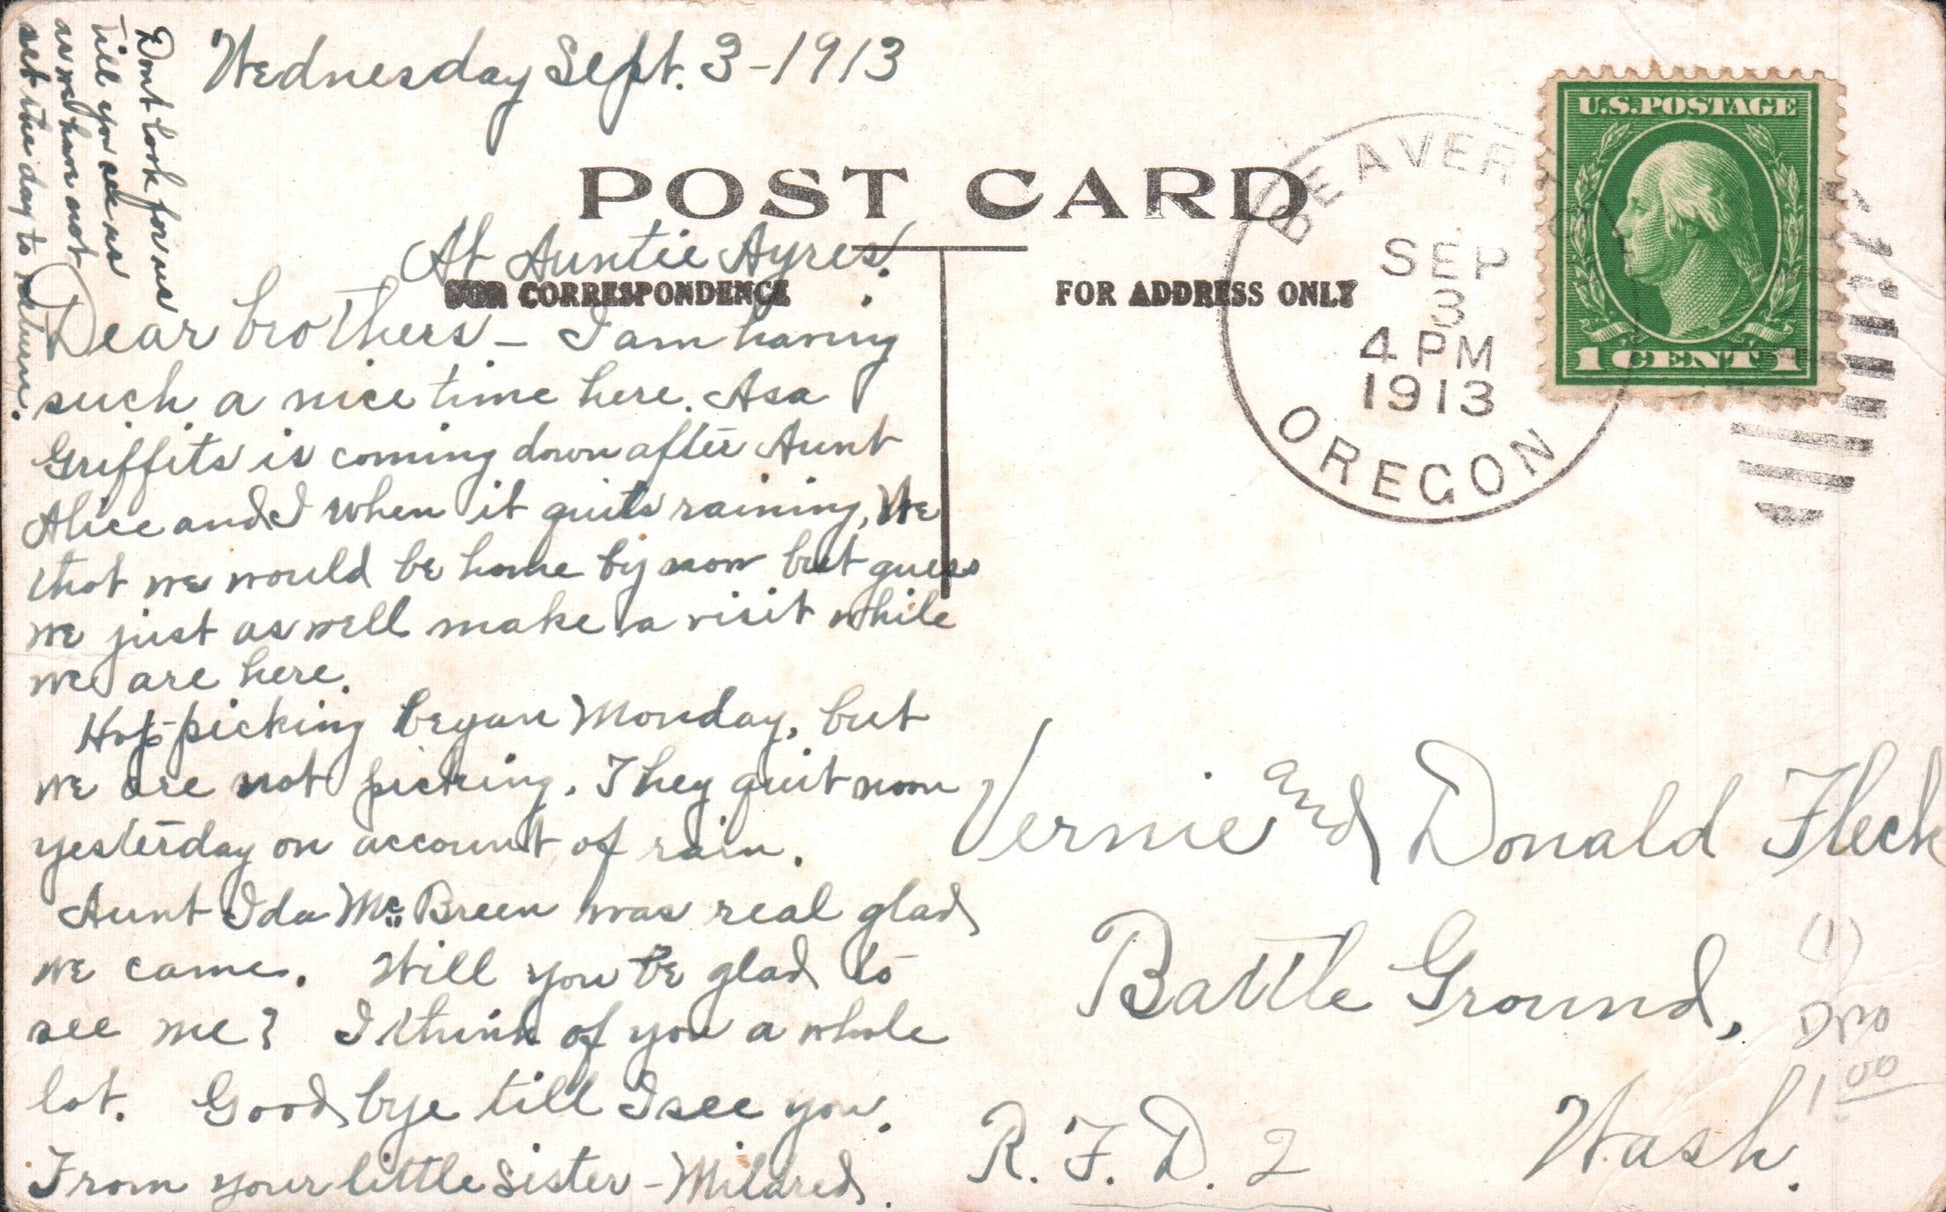 Wednesday Sept. 3-1913
POST CARD
At Auntie Ayres.
FOR CORRESPONDENCE
FOR ADDRESS ONLY
Dear brothers - I am having
such a nice time here. Asa
Griffits is coming down after Aunt
Alice and I when it quits raining, We
that we would be home by now but guess
we just as well make a visit while
we are here.
Hop-picking began Monday, but
we are not picking. They quit noon
yesterday on account of rain.
Aunt Ida Mc Breen was real glad
we came. Will you be glad to
see me? I think of you a whole
lot. Good bye till I see you.
From your little sister - Mildred.
Dont look for us
till you see us
as we have not
set the day to return.
BEAVERTON
SEP
3
4 PM
1913
OREGON
U.S. POSTAGE
1 CENT 1
Vernie and Donald Fleck
Battle Ground,
R.F.D. 2 Wash.
(1)
DPO
1 00